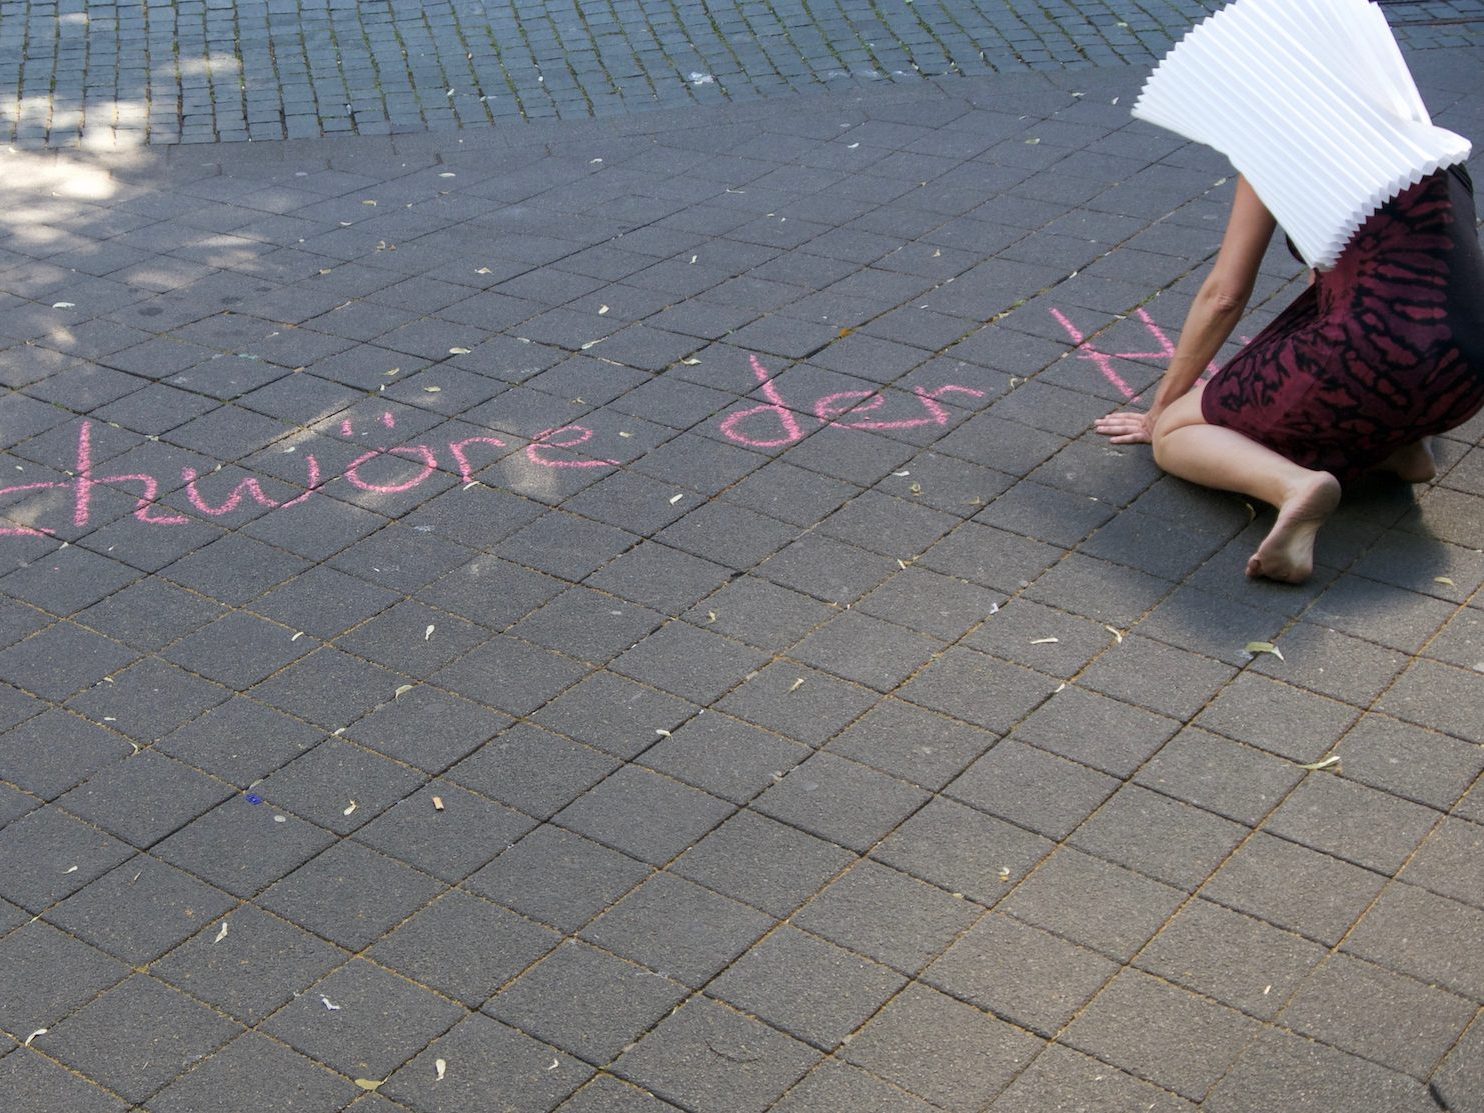 chwöre der